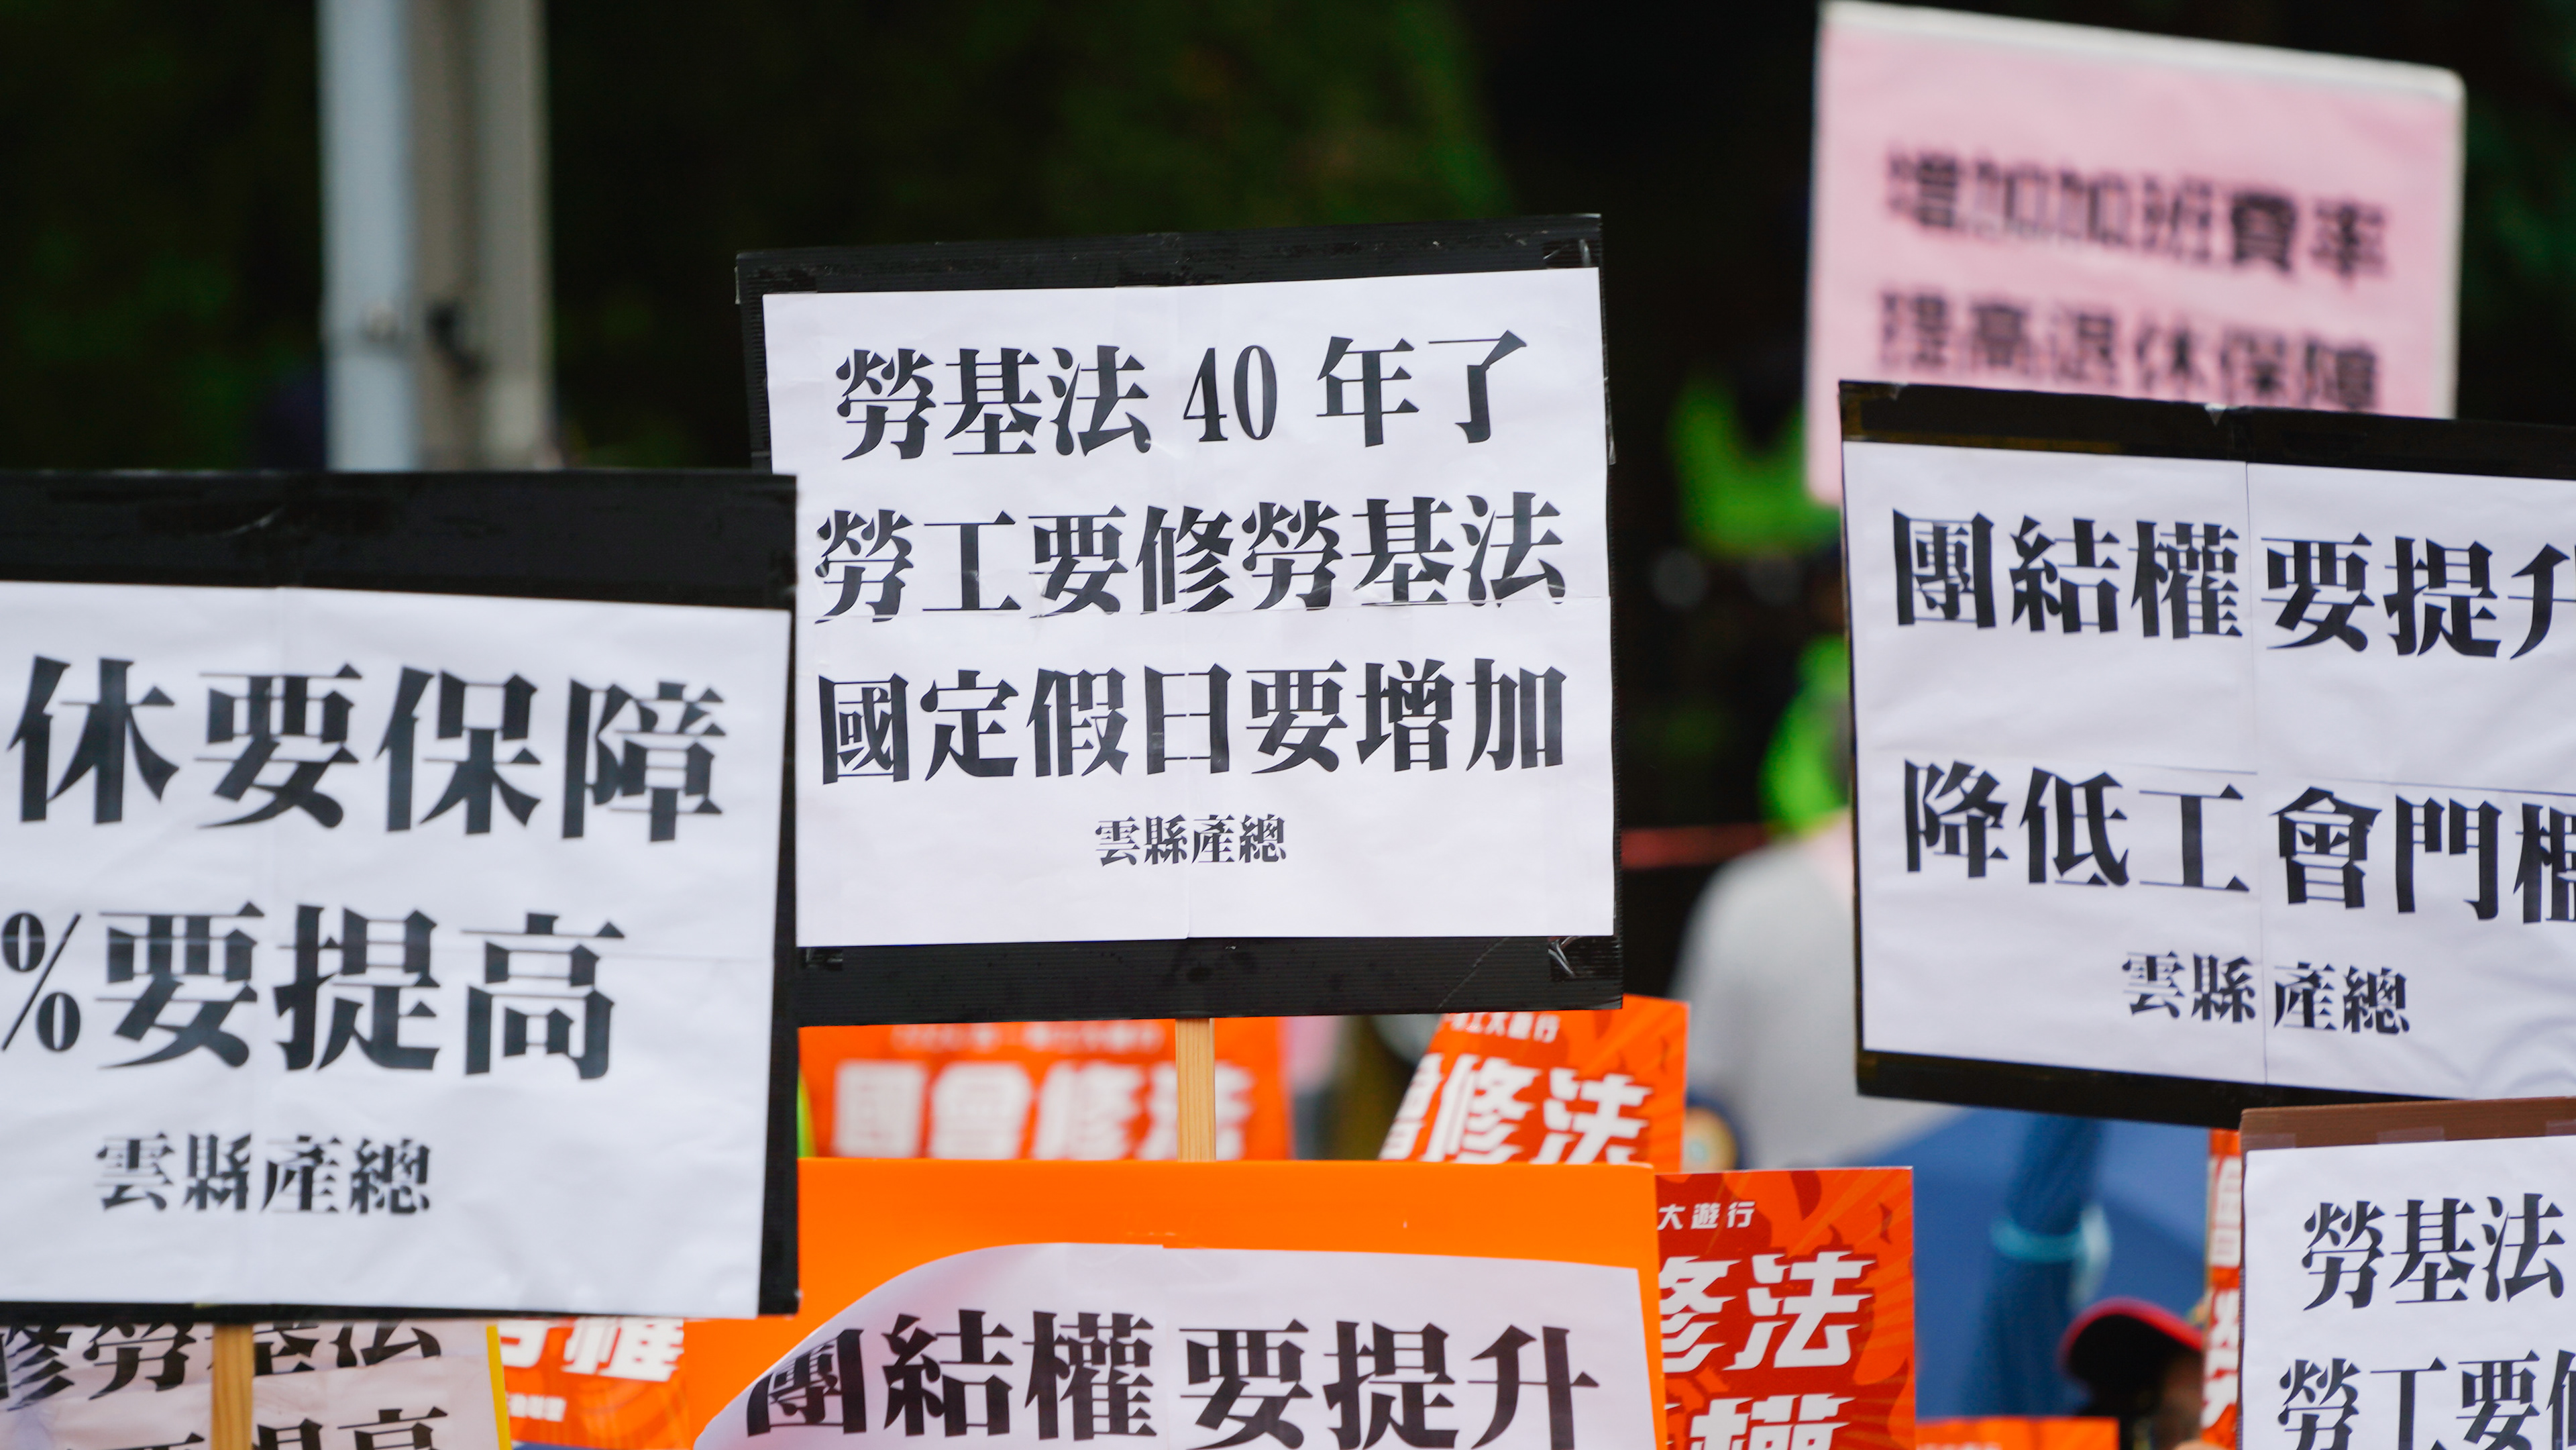 增加加班費率
提高退休保障
勞基法 40 年了
勞工要修勞基法
國定假日要增加
雲縣產總
休要保障
%要提高
雲縣產總
團結權要提升
降低工會門檻
雲縣產總
國會修法
工大遊行
會修法
大遊行
修法
權
團結權要提升
修勞基法
要提高
勞權
勞基法
勞工要修